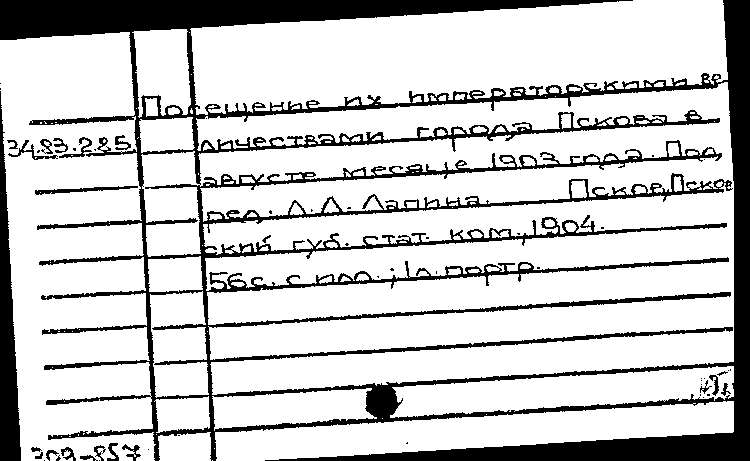 Посещение их императорскими ве
34.83.285
личествами города Пскова в
августе месяце 1903 года. Под
ред. Л.Л. Лапина. Псков, Псков
ский губ. стат. ком., 1904.
56 с. с илл.; 1 л. портр.
309-857